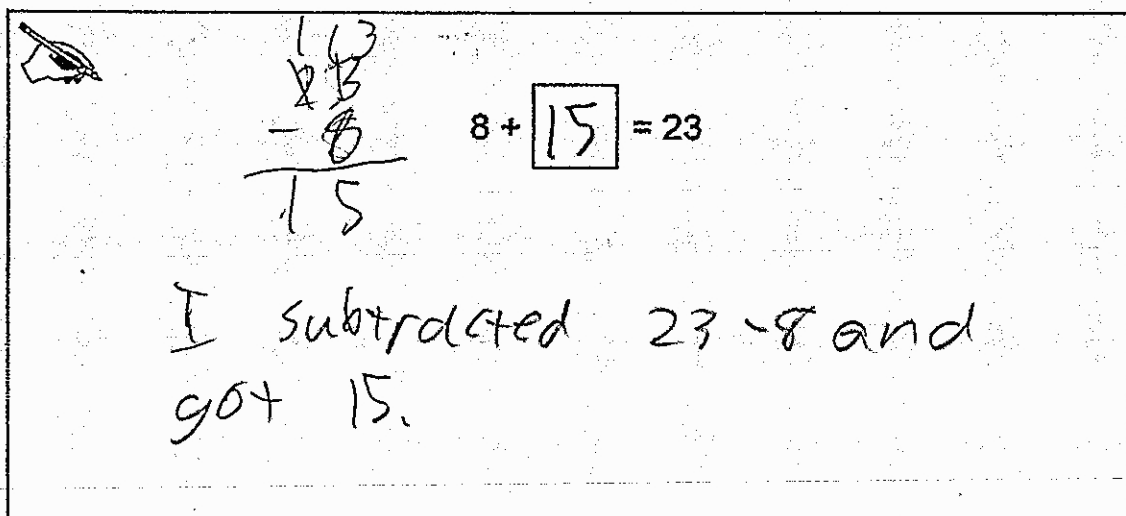 1 13
23
- 8
15
8 + 15 = 23
I subtracted 23 - 8 and
got 15.